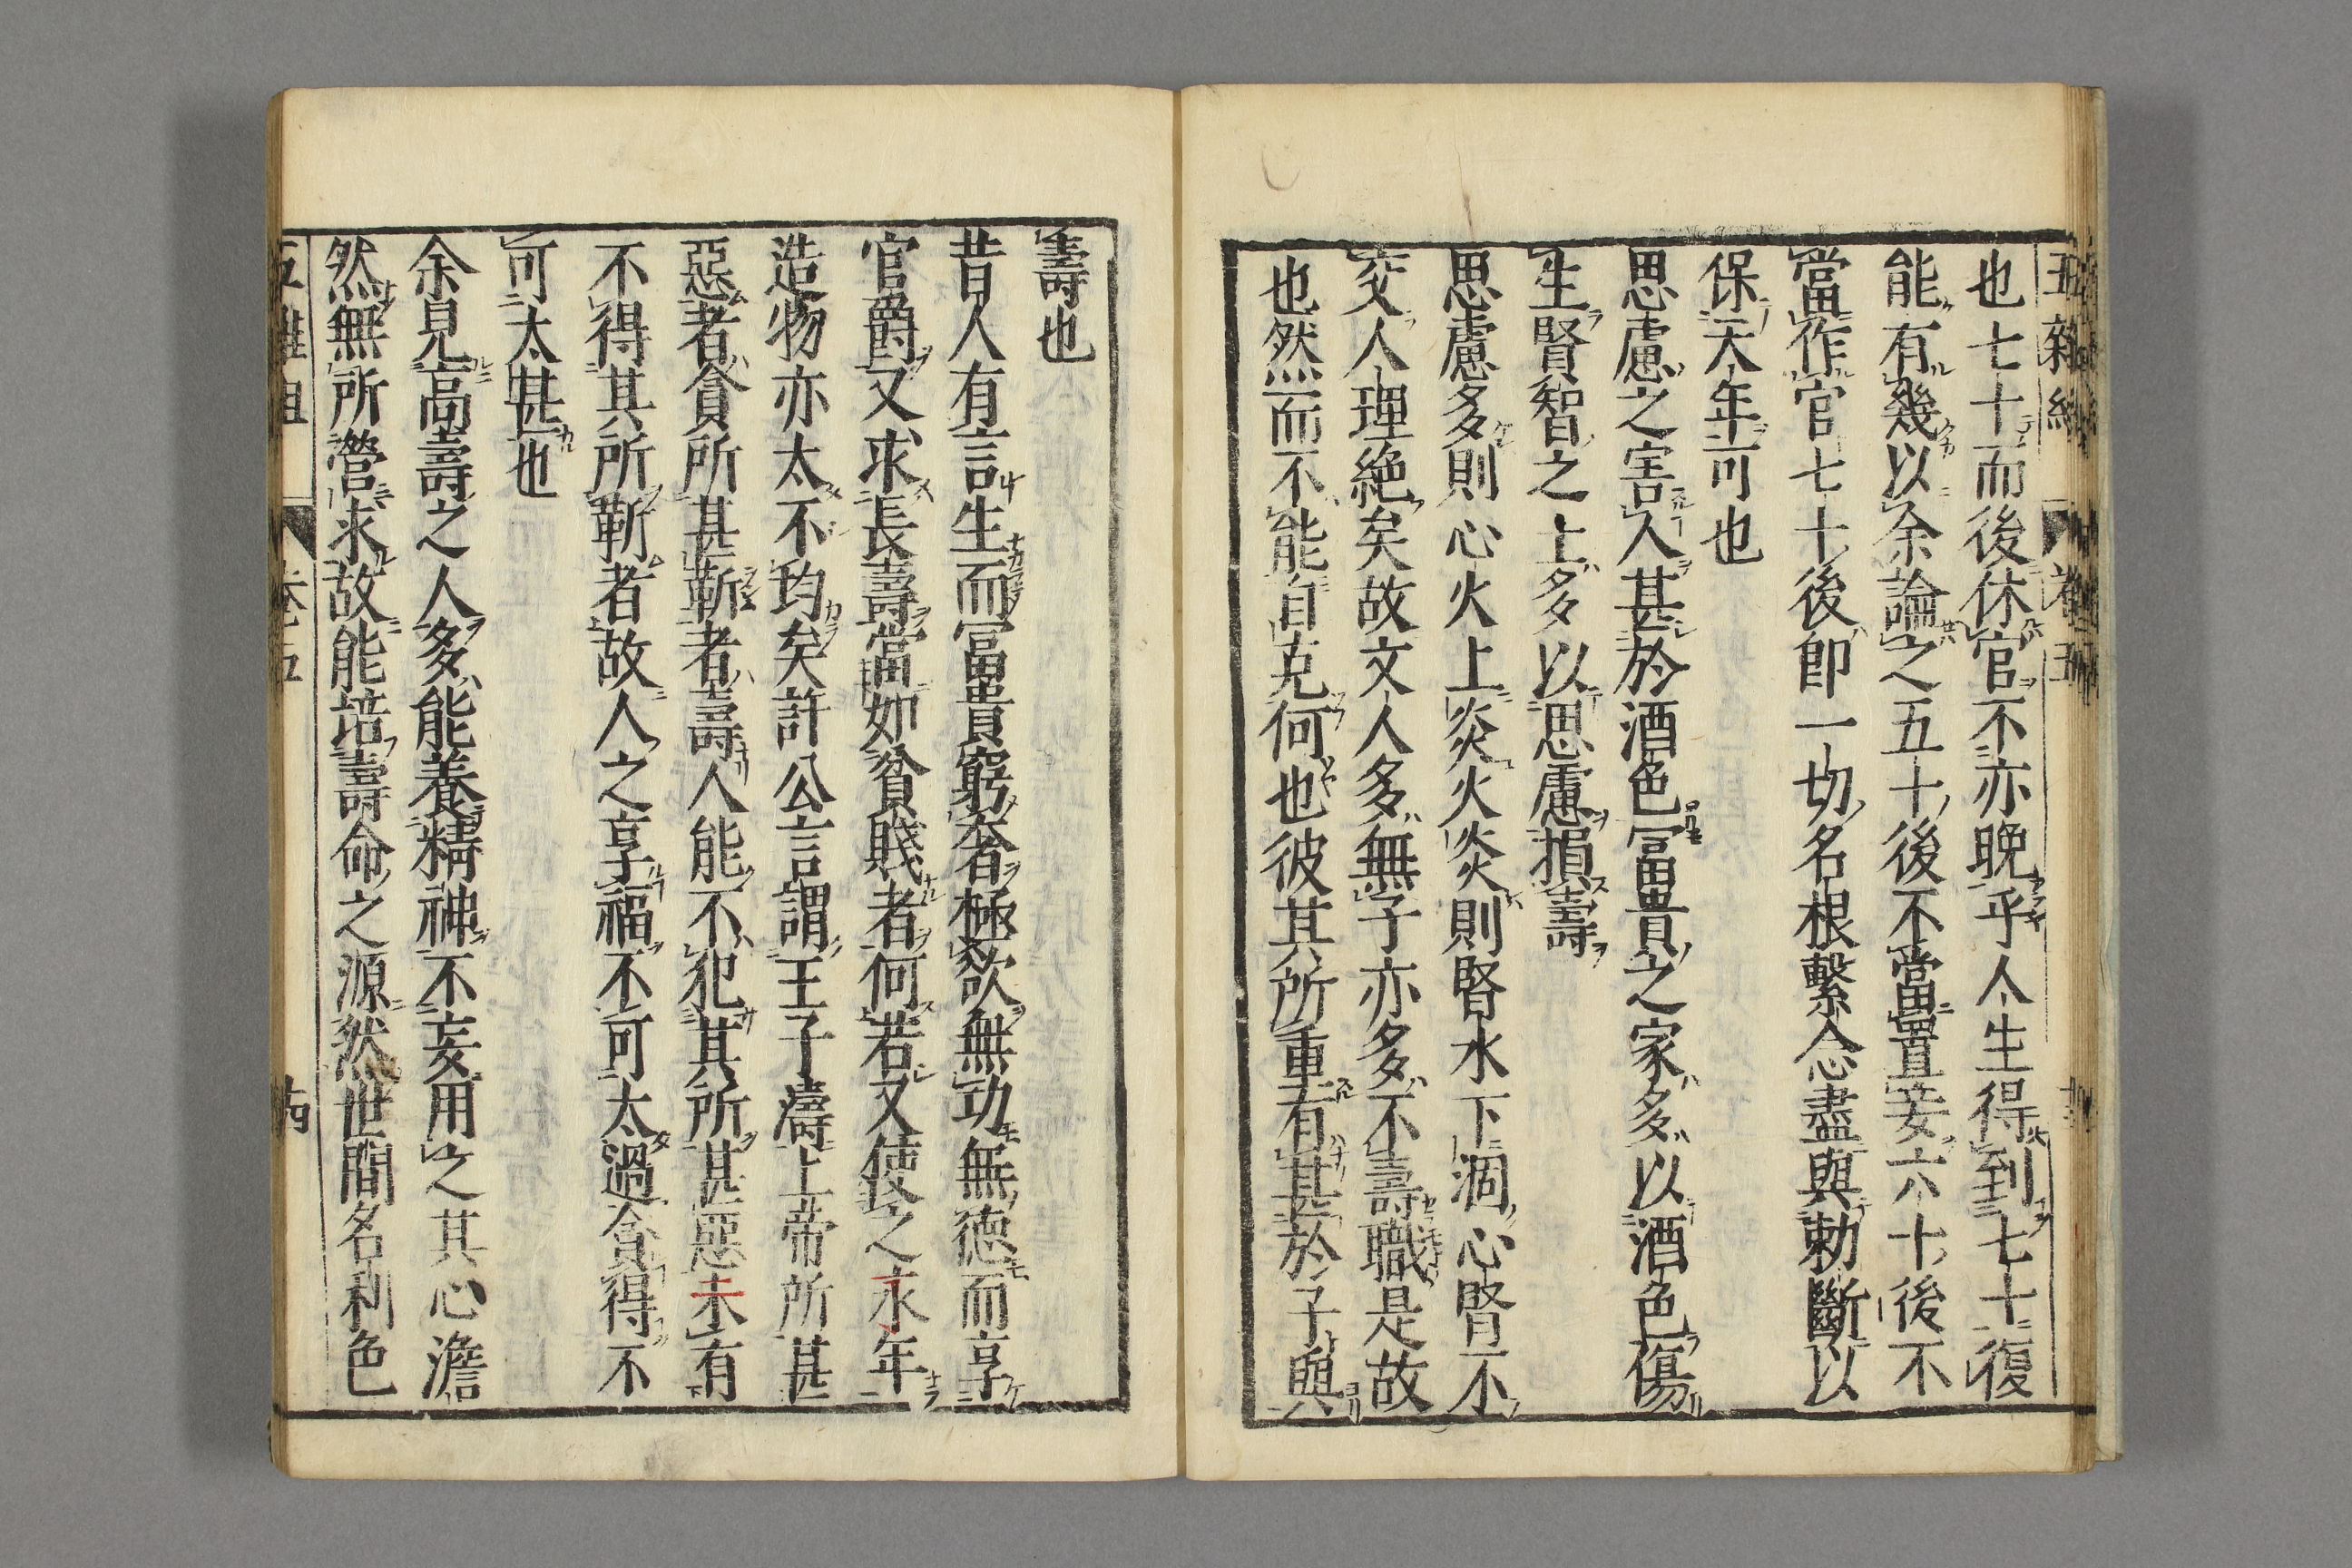 五雜組 卷五
也七十而後休官不亦晚乎人生得到七十復
能有幾以余論之五十後不當置妾六十後不
當作官七十後卽一切名根繫念盡與勅斷以
保天年可也
思慮之害人甚於酒色冨貴之家多以酒色傷
生賢智之士多以思慮損壽
思慮多則心火上炎火炎則腎水下涸心腎不
交人理絶矣故文人多無子亦多不壽職是故
也然而不能自克何也彼其所重有甚於子與
壽也
昔人有言生而冨貴窮奢極欲無功無德而享
官爵又求長壽當如貧賤者何若又使之永年
造物亦太不均矣許公言謂王子濤上帝所甚
惡者貪所甚靳者壽人能不犯其所甚惡未有
不得其所靳者故人之享福不可太過貪得不
可太甚也
余見高壽之人多能養精神不妄用之其心澹
然無所營求故能培壽命之源然世間名利色
五雜組 卷五 十四